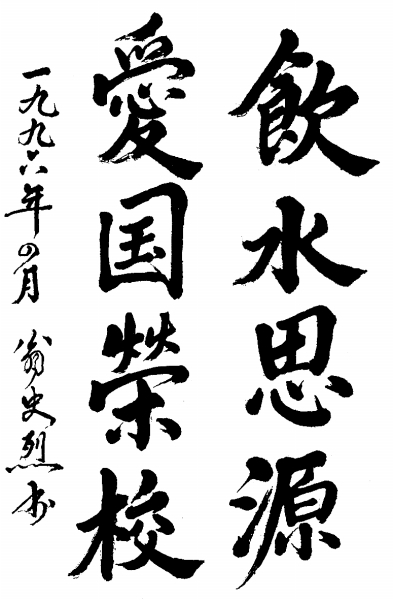 飲水思源
愛国榮校
一九九六年四月 翁史烈书